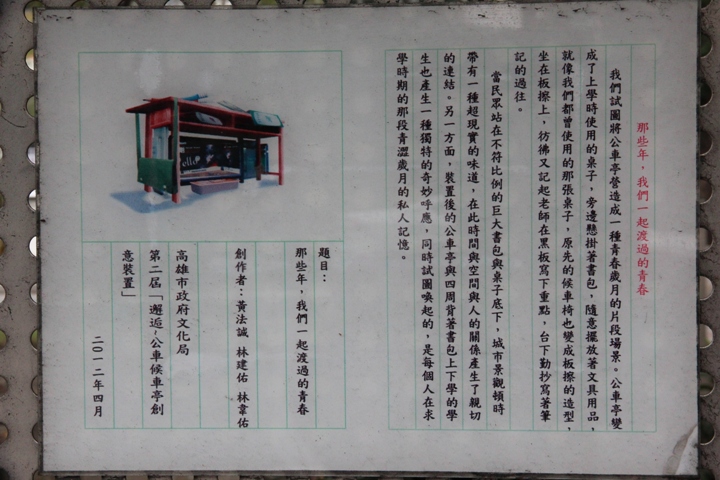 那些年，我們一起渡過的青春
我們試圖將公車亭營造成一種青春歲月的片段場景。公車亭變
成了上學時使用的桌子，旁邊懸掛著書包，隨意擺放著文具用品，
就像我們都曾使用的那張桌子，原先的候車椅也變成板擦的造型，
坐在板擦上，彷彿又記起老師在黑板寫下重點，台下勤抄寫著筆
記的過往。
當民眾站在不符比例的巨大書包與桌子底下，城市景觀頓時
帶有一種超現實的味道，在此時間與空間與人的關係產生了親切
的連結。另一方面，裝置後的公車亭與四周背著書包上下學的學
生也產生一種獨特的奇妙呼應，同時試圖喚起的，是每個人在求
學時期的那段青澀歲月的私人記憶。
題目：
那些年，我們一起渡過的青春
創作者：黃法誠 林建佑 林韋佑
高雄市政府文化局
第二屆「邂逅~公車候車亭創
意裝置」
二〇一二年四月